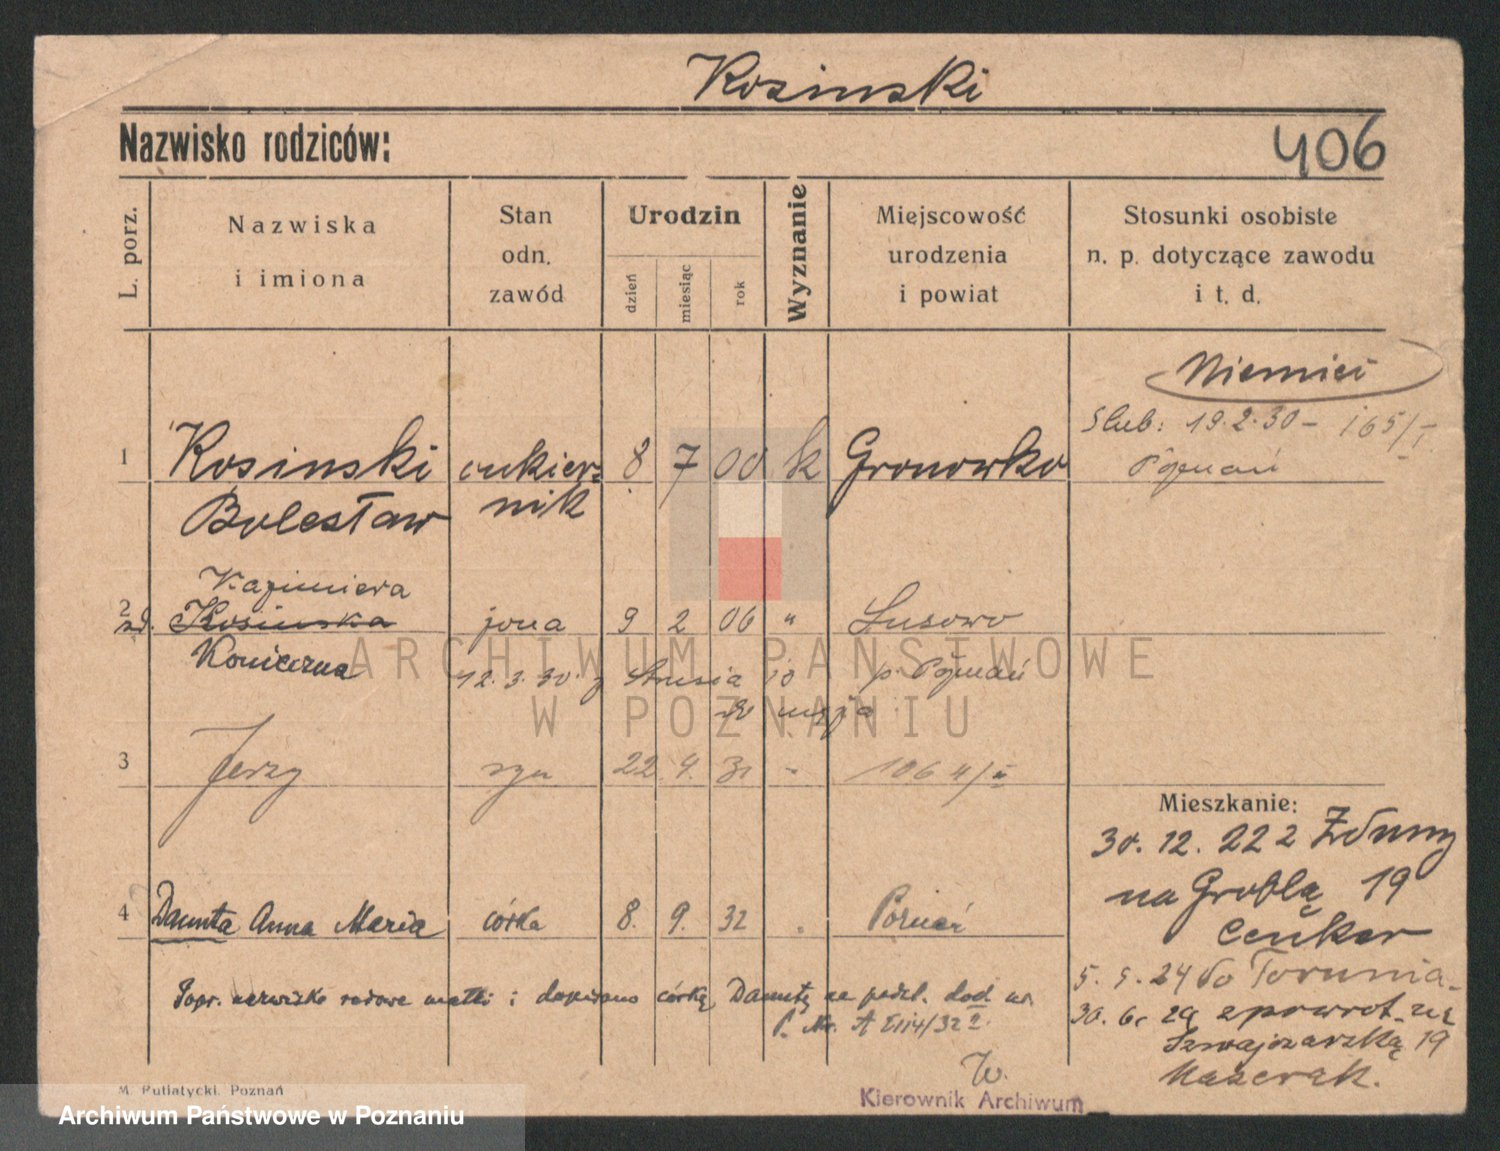 Kosinski
Nazwisko rodziców:
406
L. porz.
Nazwiska
i imiona
Stan
odn.
zawód
Urodzin
dzień
miesiąc
rok
Wyznanie
Miejscowość
urodzenia
i powiat
Stosunki osobiste
n. p. dotyczące zawodu
i t. d.
Niemiec
Slub: 19.2.30 - 165/I
Poznań
1 Kosinski cukier- 8 7 00 k Gronowko
Bolesław nik
Kazimiera
2 zd. Kosinska żona 9 2 06 " Lusowo
Konieczna
12.3.30. z Strusia 10 p. Poznań
do męża
3 Jerzy syn 22 4. 31 - 1064/II
Mieszkanie:
30. 12. 22 z Zduny
na Groblą 19
Cenker
4 Danuta Anna Maria córka 8. 9. 32 Poznań
5. 5. 24 do Torunia
Popr. nazwisko rodowe matki i dopisano córkę Danutę na podst. dod.
30. 6. 29 zpowrot. na
Szwajcarską 19
P. Nr. A
W.
M. Putiatycki, Poznań
Kierownik Archiwum
ARCHIWUM PAŃSTWOWE
W POZNANIU
Archiwum Państwowe w Poznaniu